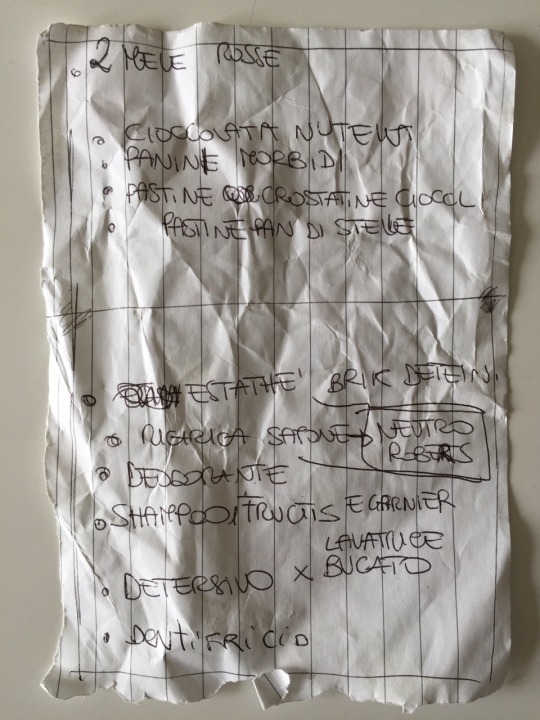 2 MELE ROSSE
CIOCCOLATA NUTELLA
PANINI MORBIDI
PASTINE CROSTATINE CIOCCL
PASTINE PAN DI STELLE
ESTATHE' BRIK DETEIN.
RICARICA SAPONE → NEUTRO
ROBERTS
DEODORANTE
SHAMPOO FRUCTIS E GARNIER
LAVATRICE
DETERSIVO X BUCATO
DENTIFRICIO